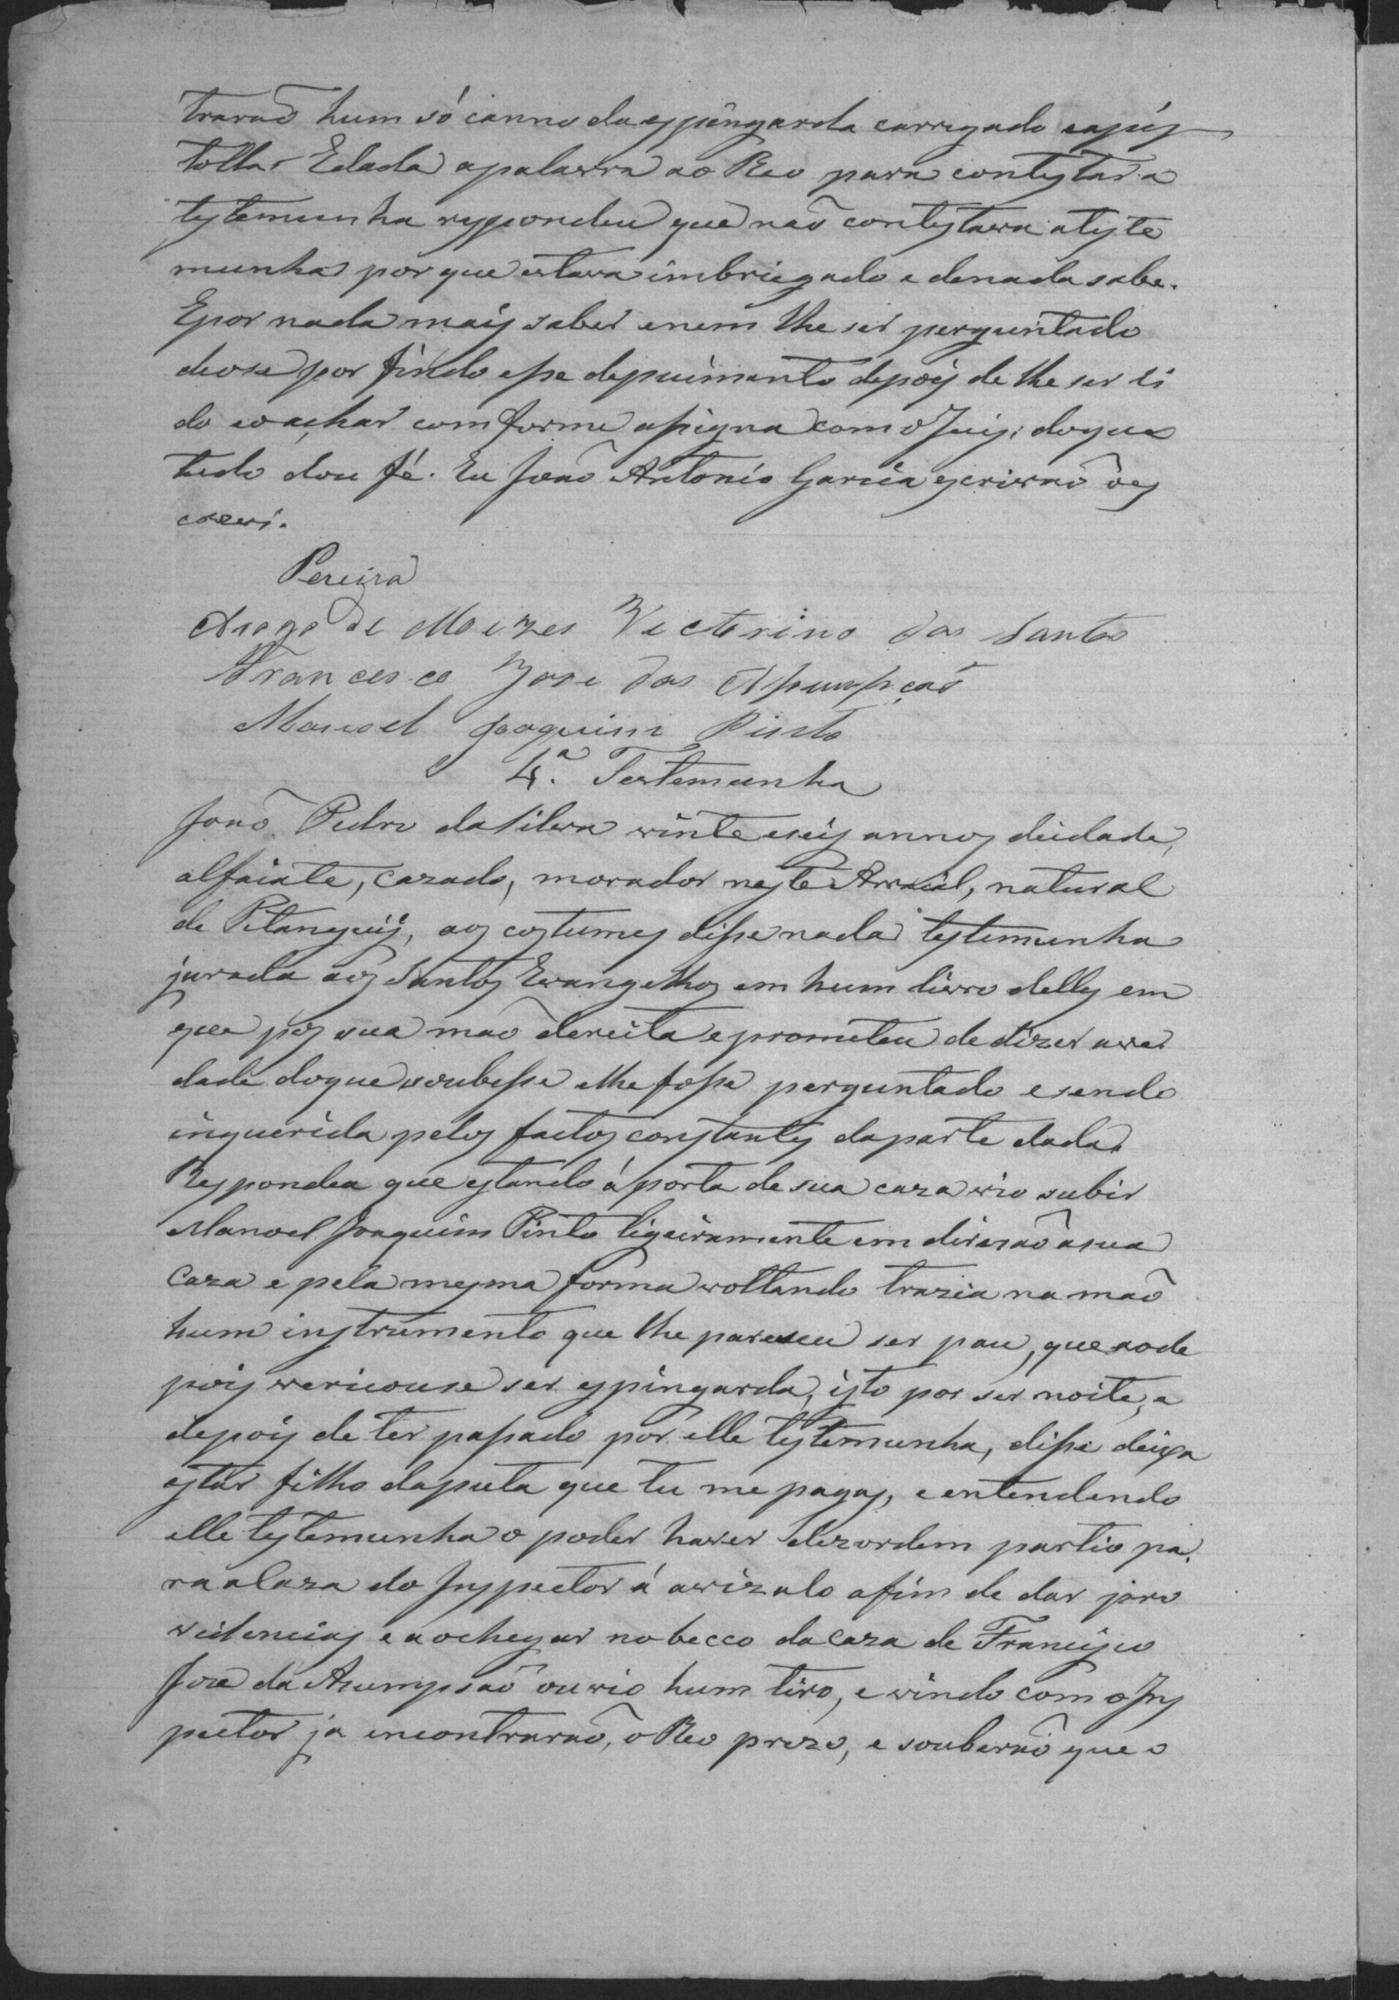 traraõ hum só canno da espingarda carregado eapis
tolla. Edada apalavra ao Reo para contestar a
testemunha respondeu que naõ contestava ateste
munha por que estava imbriegado e denada sabe.
Epor nada mais saber enem lhe ser perguntado
deose por findo esse depuimento depois de lhe ser li
do eoachar comforme assigna com o Juis, doque
tudo dou fé. Eu Joaõ Antonio Garcia escrivaõ oes
crevi.
Pereira
de Moizes Victorino dos Santos
Francesco Jose das Assumpçaõ
Manoel Joaquim Pinto
4.ª Testemunha
Joaõ Pedro daSilva vinte eseis annos deidade,
alfaiate, cazado, morador neste Arraial, natural
de Pitanguÿ, aos costumes disse nada testemunha
jurada aos Santos Evangelhos em hum livro delles em
que pos sua maõ dereita eprometeu de dizer aver
dade doque soubesse elhe fosse perguntado esendo
inquerida pelos factos constantes daparte dada.
Respondea que estando áporta de sua caza vio subir
Manoel Joaquim Pinto ligeiramente em diresaõ asua
Caza e pela mesma forma voltando trazia na maõ
hum instrumento que lhe pareceu ser pau, que aode
pois vericouse ser espingarda, isto por ser noite, e
depois de ter passado por elle testemunha, disse deixa
estar filho daputa que tu me pagas, e entendendo
elle testemunha o poder haver dezordem partio pa.
raaCaza do Inspector á avizalo afim de dar pro
videncias e aochegar nobecco dacaza de Francisco
Joze da Asumpsaõ ouvio hum tiro, e vindo com o Ins
pector ja encontraraõ, o Reo prezo, e souberaõ que o